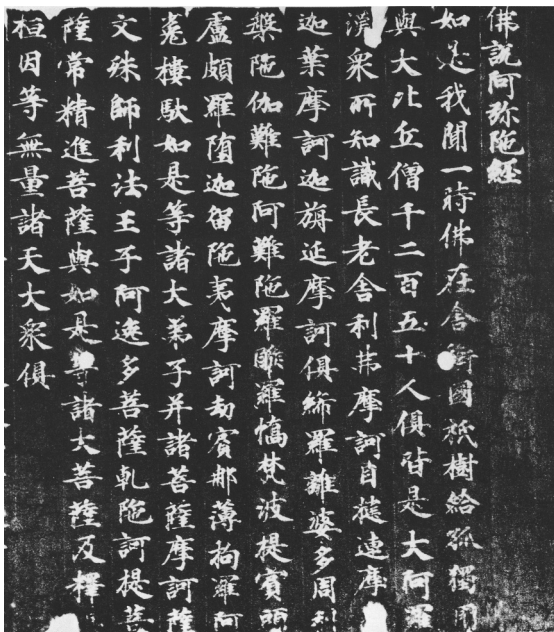 佛說阿弥陁經
如是我聞一時佛在舍衛國祇樹給孤獨園
與大比丘僧千二百五十人俱皆是大阿羅
漢衆所知識長老舍利弗摩訶目揵連摩
迦葉摩訶迦旃延摩訶俱絺羅離婆多周利
槃陁伽難陁阿難陁羅睺羅憍梵波提賓頭
盧頗羅墮迦留陁夷摩訶劫賓那薄拘羅阿
㝹樓馱如是等諸大弟子并諸菩薩摩訶薩
文殊師利法王子阿逸多菩薩乹陁訶提菩
薩常精進菩薩與如是等諸大菩薩及釋
桓因等無量諸天大衆俱